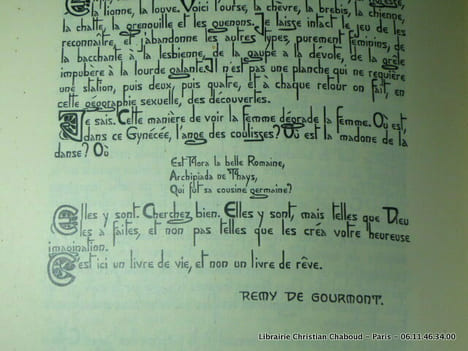 la lionne, la louve. Voici l'ourse, la chèvre, la brebis, la chienne,
la chatte, la grenouille et les guenons. Je laisse intact le jeu de les
reconnaître, et j'abandonne les autres types, purement féminins, de
la bacchante à la lesbienne, de la gaupe à la dévote, de la grêle
impubère à la lourde galante. Il n'est pas une planche qui ne requière
une station, puis deux, puis quatre, et à chaque retour on fait, en
cette géographie sexuelle, des découvertes.
Je sais. Cette manière de voir la femme dégrade la femme. Où est,
dans ce Gynécée, l'ange des coulisses? Où est la madone de la
danse? Où
Est Flora la belle Romaine,
Archipiada ne Thays,
Qui fut sa cousine germaine?
Elles y sont. Cherchez bien. Elles y sont, mais telles que Dieu
les a faites, et non pas telles que les créa votre heureuse
imagination.
C'est ici un livre de vie, et non un livre de rêve.
REMY DE GOURMONT.
Librairie Christian Chaboud - Paris - 06.11.46.34.00